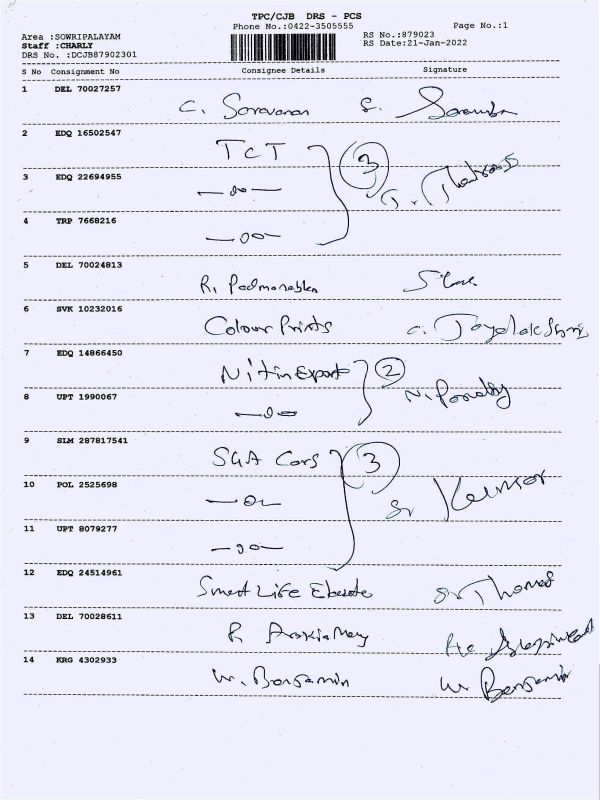 TPC/CJB DRS - PCS
Phone No.:0422-3505555 Page No.:1
Area :SOWRIPALAYAM RS No.:879023
Staff :CHARLY RS Date:21-Jan-2022
DRS No. :DCJB87902301
S No Consignment No Consignee Details Signature
1 DEL 70027257
C. Saravanan S.
2 EDQ 16502547
TCT 3
3 EDQ 22694955
4 TRP 7668216
5 DEL 70024813
R.
6 SVK 10232016
Colour Prints
7 EDQ 14866450
Nitin Export 2
8 UPT 1990067
9 SLM 287817541
SGA Cars 3
10 POL 2525698
11 UPT 8079277
12 EDQ 24514961
Smart Life
13 DEL 70028611
14 KRG 4302933
W. Benjamin W Benjamin